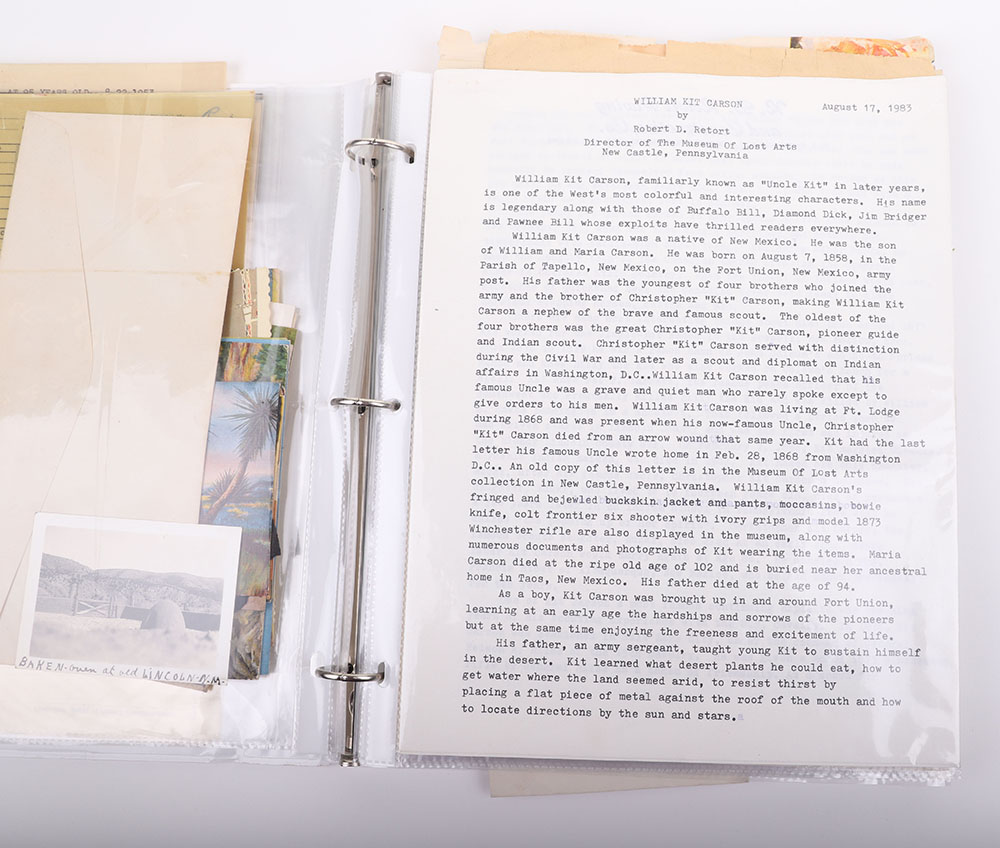 AT 95 YEARS OLD. 8-22-1953
BAKEN-oven at old LINCOLN-N.M.
WILLIAM KIT CARSON August 17, 1983
by
Robert D. Retort
Director of The Museum Of Lost Arts
New Castle, Pennsylvania
William Kit Carson, familiarly known as "Uncle Kit" in later years,
is one of the West's most colorful and interesting characters. His name
is legendary along with those of Buffalo Bill, Diamond Dick, Jim Bridger
and Pawnee Bill whose exploits have thrilled readers everywhere.
William Kit Carson was a native of New Mexico. He was the son
of William and Maria Carson. He was born on August 7, 1858, in the
Parish of Tapello, New Mexico, on the Fort Union, New Mexico, army
post. His father was the youngest of four brothers who joined the
army and the brother of Christopher "Kit" Carson, making William Kit
Carson a nephew of the brave and famous scout. The oldest of the
four brothers was the great Christopher "Kit" Carson, pioneer guide
and Indian scout. Christopher "Kit" Carson served with distinction
during the Civil War and later as a scout and diplomat on Indian
affairs in Washington, D.C..William Kit Carson recalled that his
famous Uncle was a grave and quiet man who rarely spoke except to
give orders to his men. William Kit Carson was living at Ft. Lodge
during 1868 and was present when his now-famous Uncle, Christopher
"Kit" Carson died from an arrow wound that same year. Kit had the last
letter his famous Uncle wrote home in Feb. 28, 1868 from Washington
D.C.. An old copy of this letter is in the Museum Of Lost Arts
collection in New Castle, Pennsylvania. William Kit Carson's
fringed and bejewled buckskin jacket and pants, moccasins, bowie
knife, colt frontier six shooter with ivory grips and model 1873
Winchester rifle are also displayed in the museum, along with
numerous documents and photographs of Kit wearing the items. Maria
Carson died at the ripe old age of 102 and is buried near her ancestral
home in Taos, New Mexico. His father died at the age of 94.
As a boy, Kit Carson was brought up in and around Fort Union,
learning at an early age the hardships and sorrows of the pioneers
but at the same time enjoying the freeness and excitement of life.
His father, an army sergeant, taught young Kit to sustain himself
in the desert. Kit learned what desert plants he could eat, how to
get water where the land seemed arid, to resist thirst by
placing a flat piece of metal against the roof of the mouth and how
to locate directions by the sun and stars.